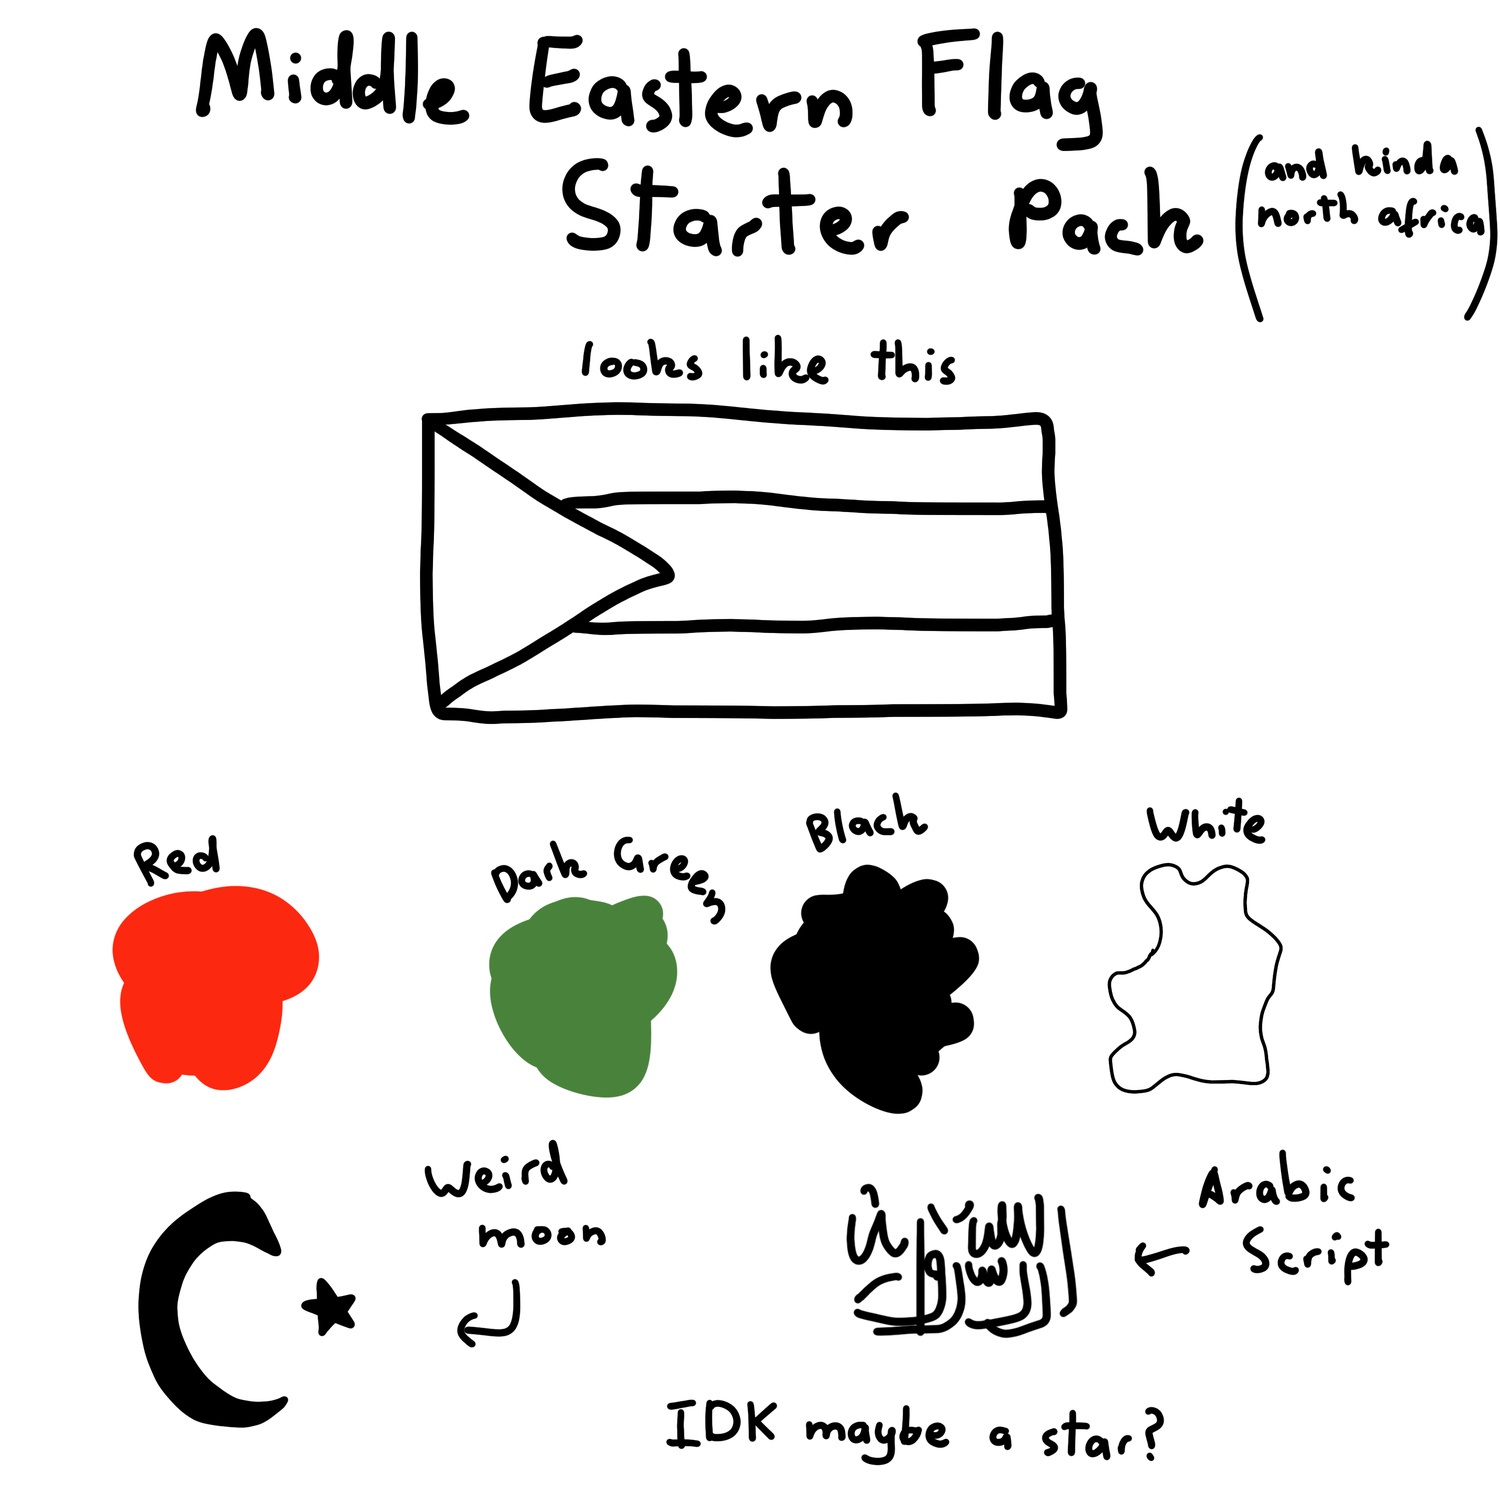 Middle Eastern Flag
Starter Pack
(and kinda
north africa)
looks like this
Red
Dark Green
Black
White
Weird
moon
Arabic
Script
IDK maybe a star?